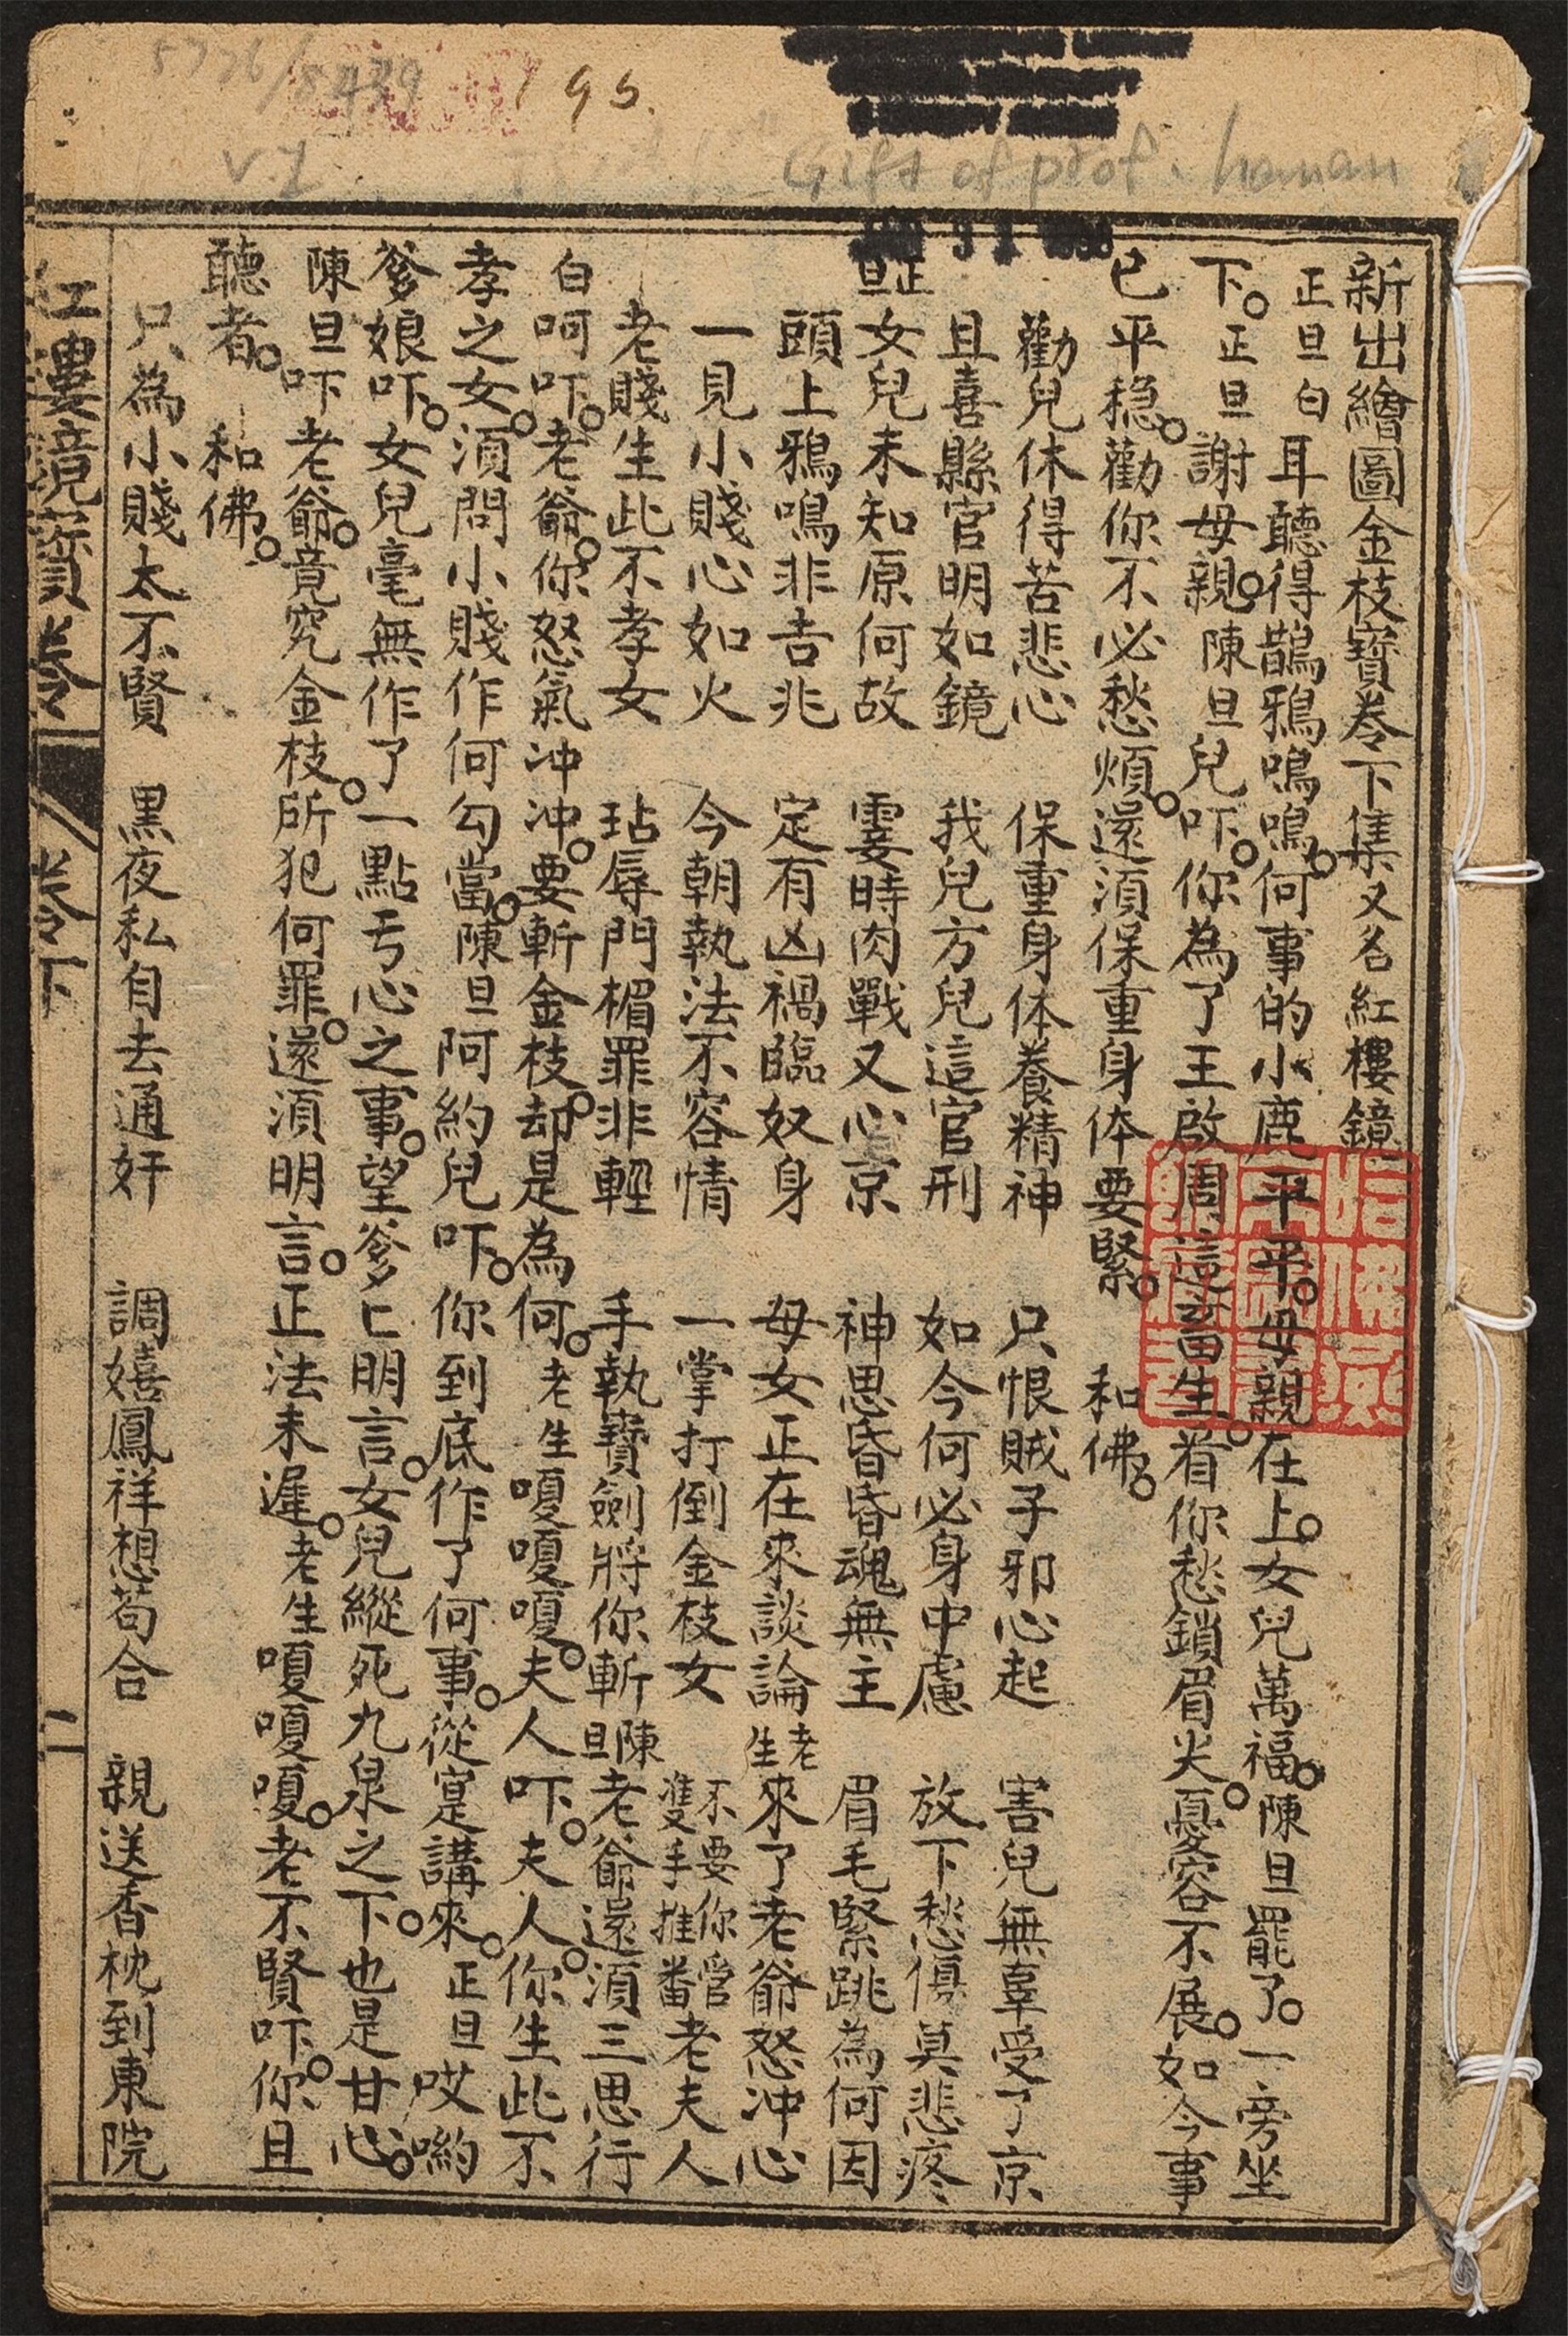 新出繪圖金枝寶卷下集又名紅樓鏡
正旦白耳聽得鵲鴉鳴鳴。何事的小鹿平平。母親在上。女兒萬福。陳旦罷了。一旁坐
下。正旦謝母親。陳旦兒吓。你為了王啟周這畜生。看你愁鎖眉尖。憂容不展。如今事
已平稳。勸你不必愁煩。還須保重身体要緊。 和佛。
勸兒休得苦悲心 保重身体養精神 只恨賊子邪心起 害兒無辜受了京
且喜縣官明如鏡 我兒方兒這官刑 如今何必身中慮 放下愁慎莫悲疼
正旦女兒未知原何故 霎時肉戰又心京 神思昏昏魂無主 眉毛緊跳為何因
頭上鴉鳴非吉兆 定有凶禍臨奴身 母女正在來談論 老生來了老爺怒冲心
一見小賤心如火 今朝執法不容情 一掌打倒金枝女 不要你管雙手推番老夫人
老賤生此不孝女 玷辱門楣罪非輕 手執寶劍將你斬 陳旦老爺還須三思行
白呵吓。老爺。你怒氣冲冲。要斬金枝。却是為何。老生嗄嗄嗄。夫人吓。夫人。你生此不
孝之女。須問小賤作何勾當。陳旦阿約兒吓。你到底作了何事。從寔講來。正旦哎喲
爹娘吓。女兒毫無作了一點亏心之事。望爹匕明言。女兒縱死九泉之下。也是甘心。
陳旦吓老爺。竟究金枝。所犯何罪。還須明言。正法未遲。老生嗄嗄嗄。老不賢吓。你且
聽者。 和佛。
只為小賤太不賢 黑夜私自去通奸 調嬉鳳祥想苟合 親送香枕到東院
紅樓鏡寶卷 卷下 一
5726/8439
195.
V.2
Gift of prof. hanan